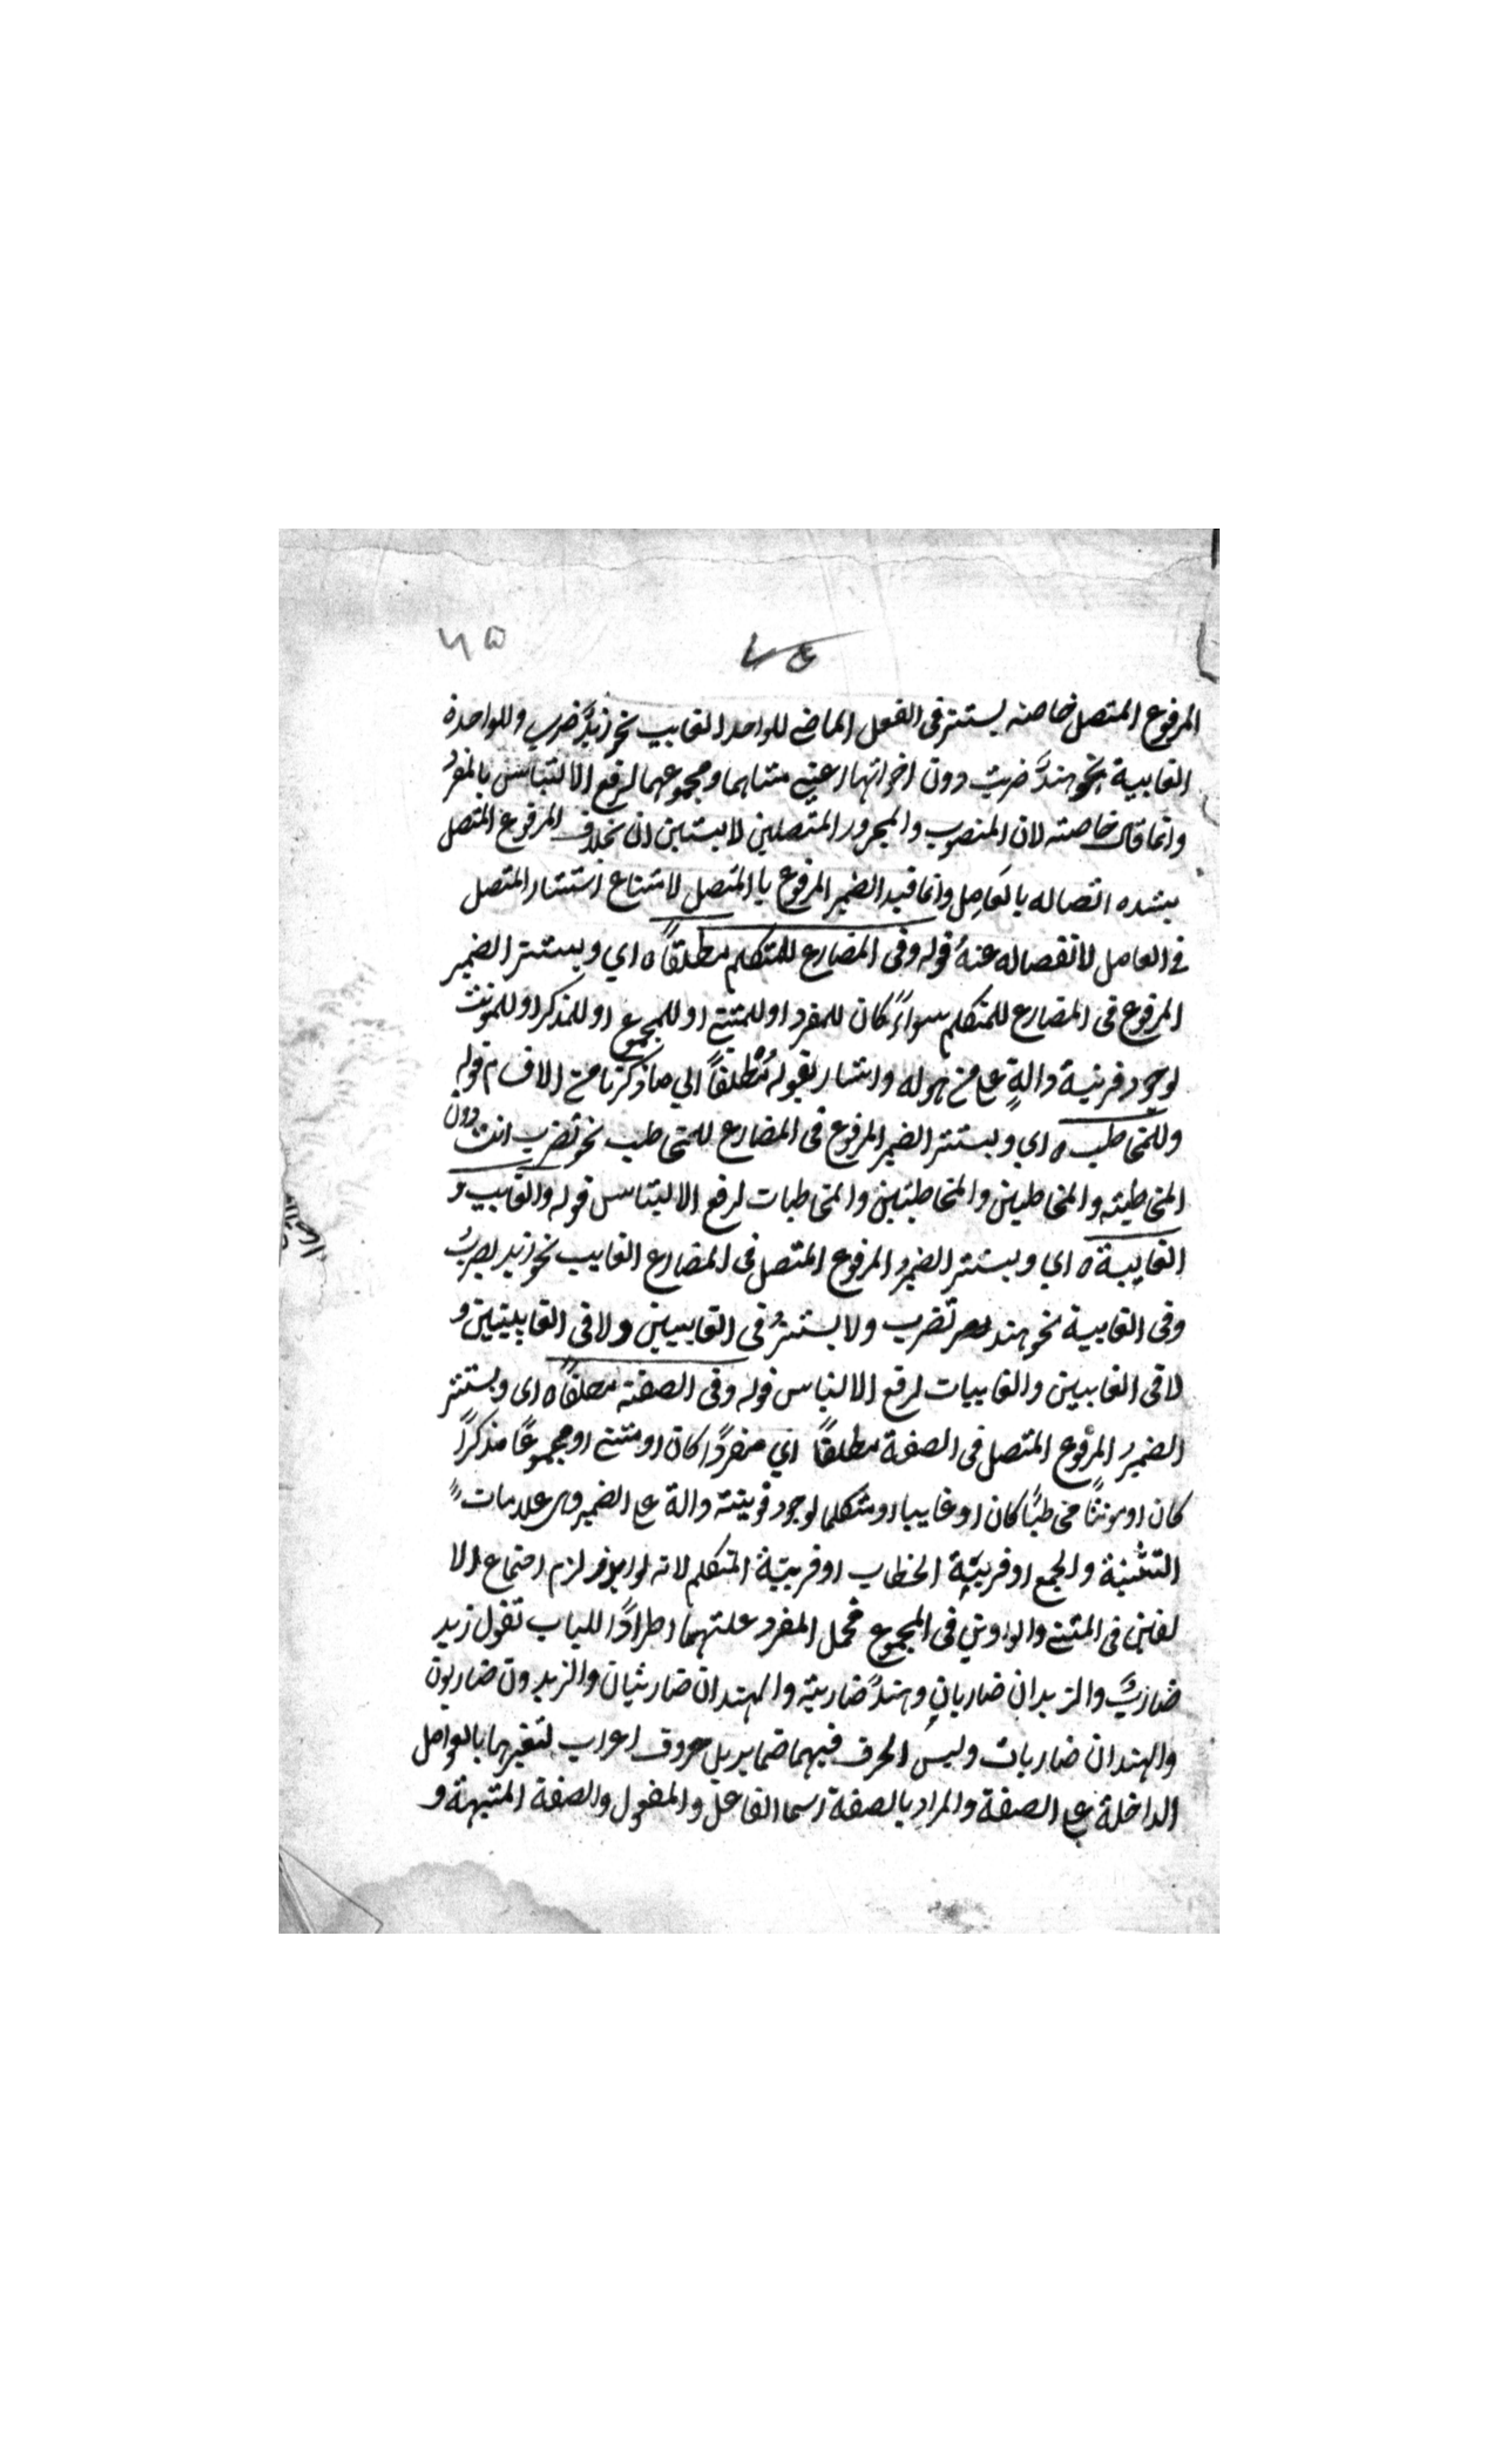 ٤٥
المرفوع المتصل خاصة يستتر فى الفعل الماضى للواحد الغايب نحو زيدٌ ضرب وللواحدة
الغايبة نحو هندٌ ضربت دون اخواتها اعنى مثناهما ومجموعهما لرفع الالتباس بالمفرد
وانما قال خاصته لان المنصوب والمجرور المتصلين لا يستتران بخلاف المرفوع المتصل
بشده اتصاله بالعامل وانما قيد الضمير المرفوع بالمتصل لامتناع استتار المتصل
فى العامل لانفصاله عنه قوله وفى المضارع للمتكلم مطلقاً ه اي ويستتر الضمير
المرفوع فى المضارع للمتكلم سواءً كان للمفرد او للمثنى او للمجموع او للمذكر او للمونث
لوجود قرينة دالةٍ على من هو له واشار بقوله مُطْلقاً الي ما ذكرنا من الاقسام قوله
وللمخاطب ه اي ويستتر الضمير المرفوع فى المضارع للمخاطب نحو تضرب انت دون
المخاطبة والمخاطبين والمخاطبتين والمخاطبات لرفع الالتباس قوله والغايب و
الغايبة ه اي ويستتر الضميرُ المرفوع المتصل فى المضارع الغايب نحو زيد يضربُ
وفى الغايبة نحو هند تضرب ولا يستترُ فى الغايبين ولا فى الغايبتين و
لا فى الغايبين والغايبات لرفع الالتباس قوله وفى الصفة مطلقاً ه اى ويستتر
الضميرُ المرفوع المتصل فى الصفة مطلقاً اي مفردًا كان او مثنى او مجموعًا مذكرًا
كان او مونثًا مخاطبًا كان او غايبا او متكلما لوجود قرينة دالة على الضمير وهى علامات
التثنية والجمع او قرينة الخطاب او قرينة المتكلم لانه لو ابرز لزم اجتماع الا
لفين فى المثنى والواوين فى المجموع فحمل المفرد عليهما اطرادًا للباب تقول زيد
ضاربٌ والزيدان ضاربانِ وهندٌ ضاربة والهندان ضاربتان والزيدون ضاربون
والهندان ضاربات وليس الحرف فيهما ضما بريل حروف اعراب لتغيرهما بالعوامل
الداخلة على الصفة والمراد بالصفة اسما الفاعل والمفعول والصفة المشبهة و